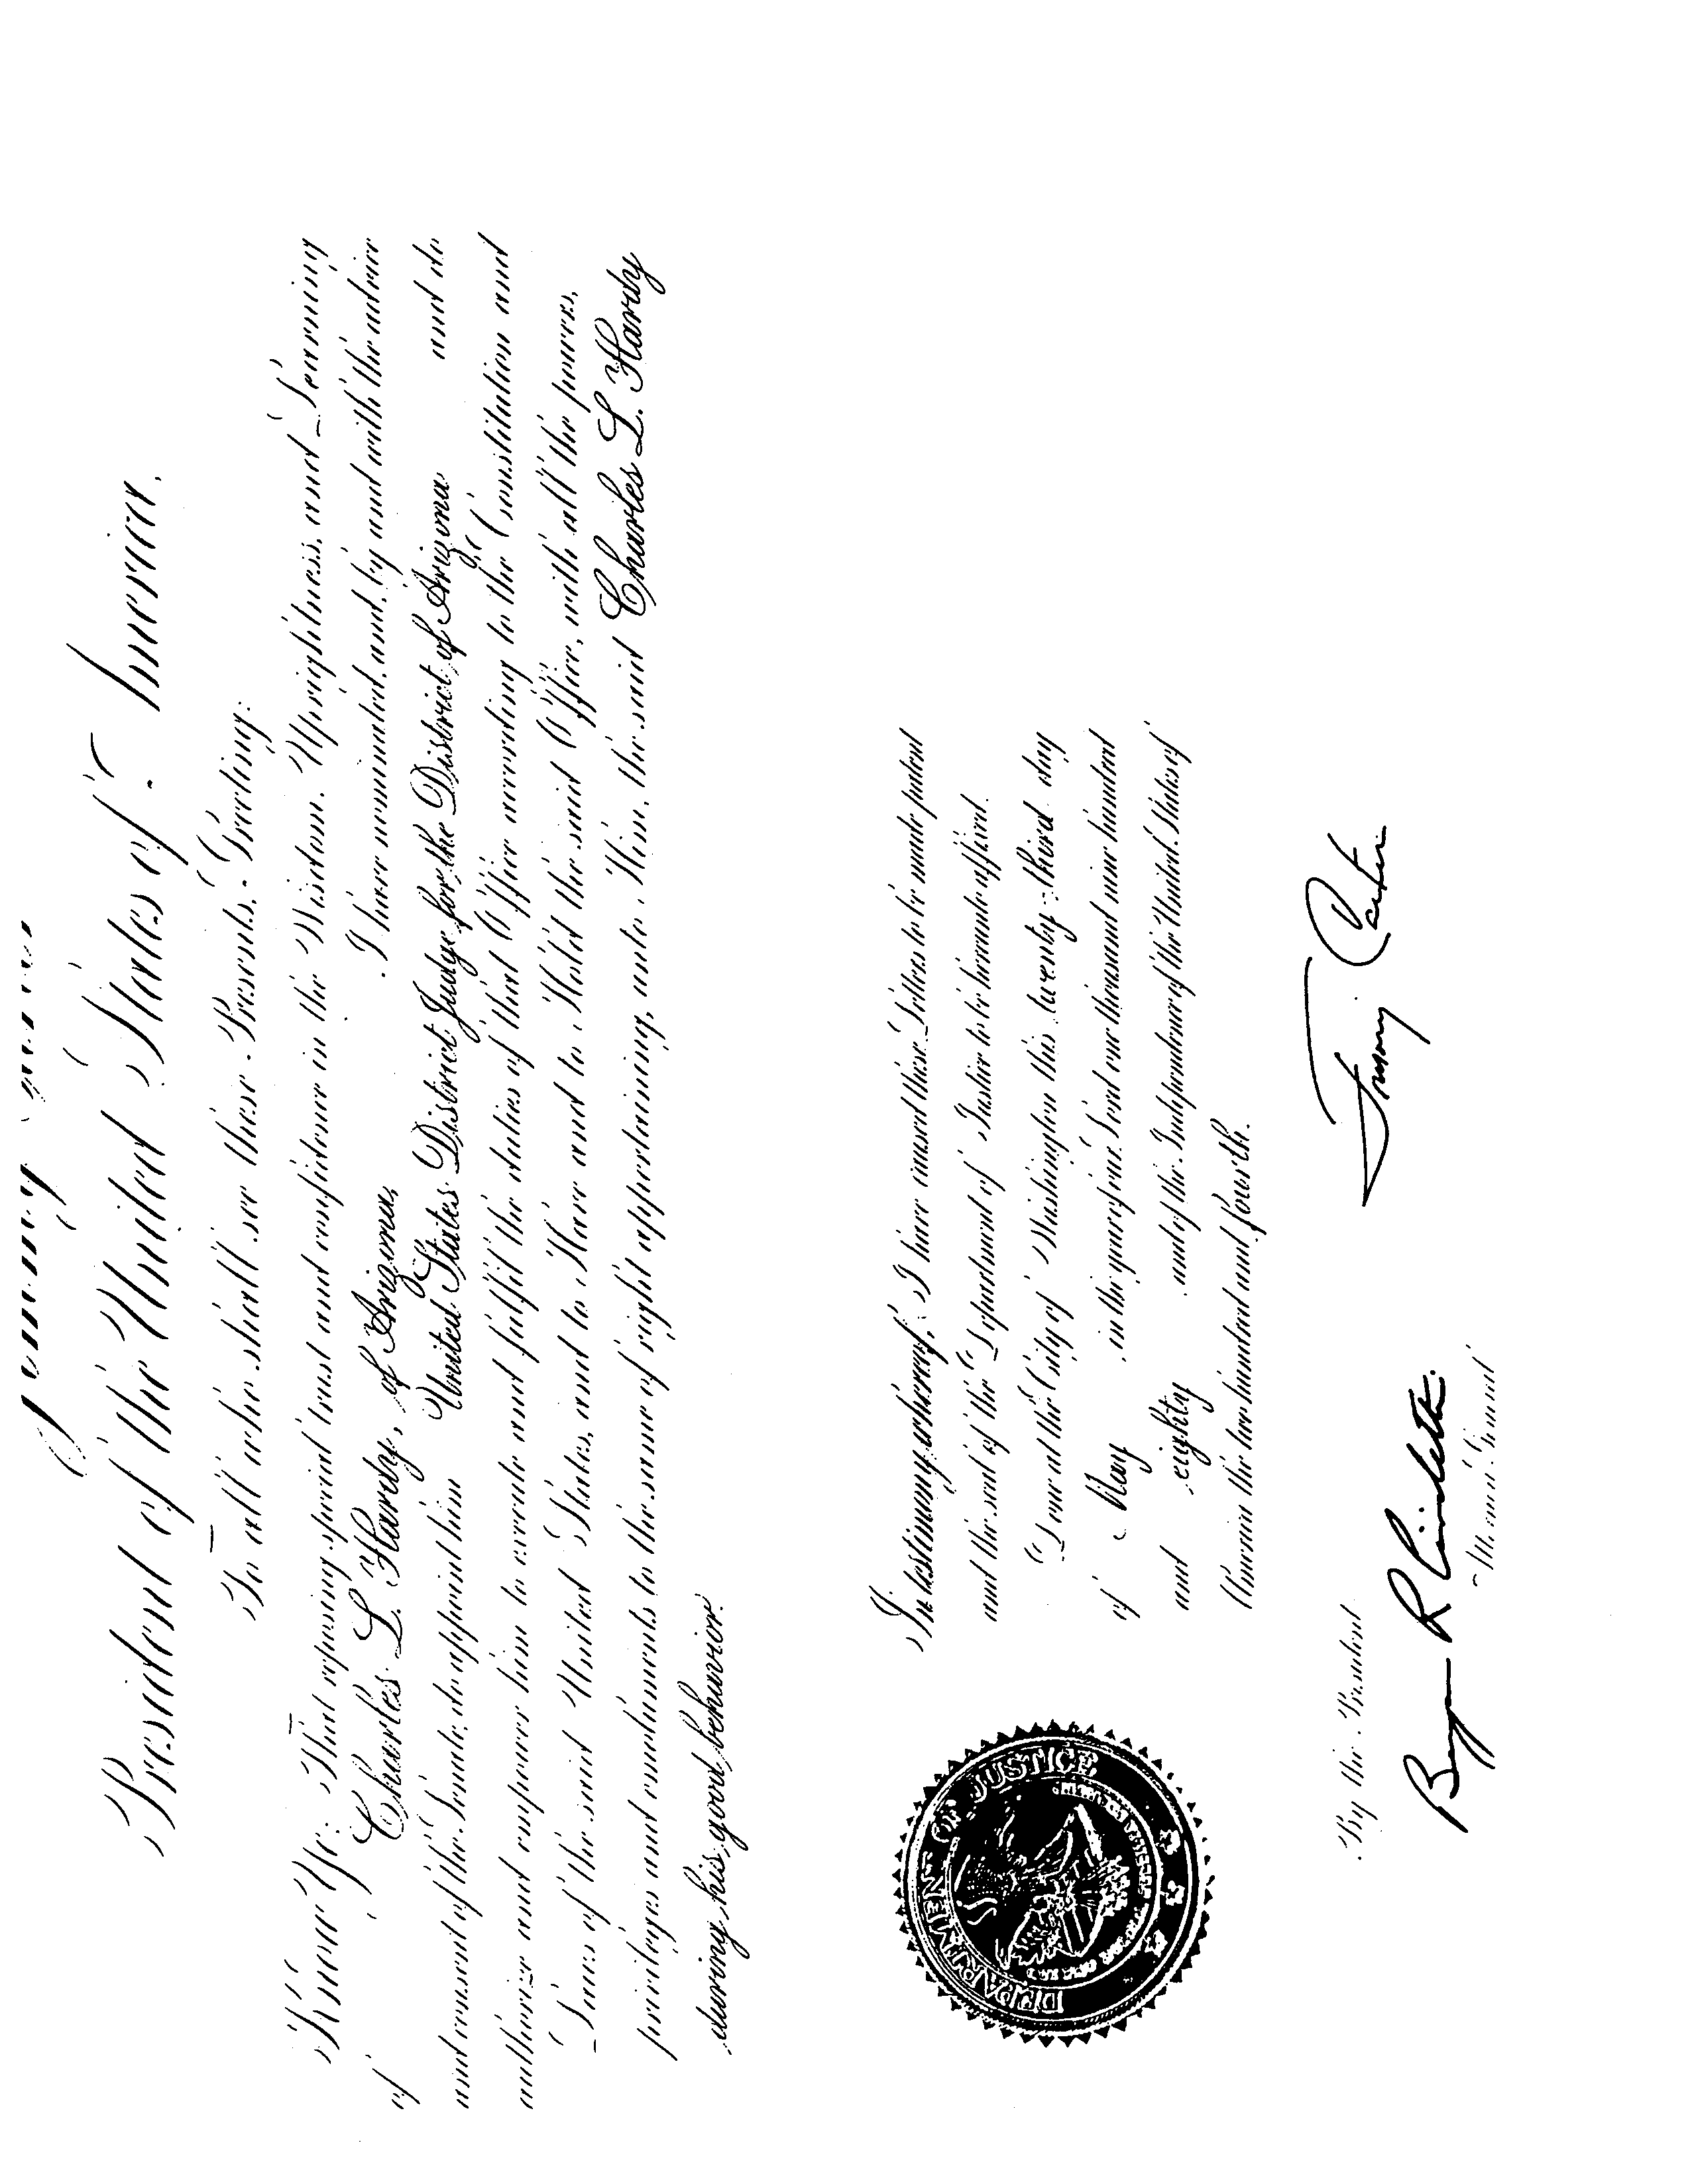 Jimmy Carter
President of the United States of America.
To all who shall see these Presents, Greeting:
Know Ye; That reposing special trust and confidence in the Wisdom, Uprightness, and Learning
of Charles L. Hardy, of Arizona, I have nominated, and, by and with the advice
and consent of the Senate, do appoint him United States District Judge for the District of Arizona and do
authorize and empower him to execute and fulfil the duties of that Office according to the Constitution and
Laws of the said United States, and to Have and to Hold the said Office, with all the powers,
privileges and emoluments to the same of right appertaining, unto Him, the said Charles L. Hardy
during his good behavior.
In testimony whereof, I have caused these Letters to be made patent
and the seal of the Department of Justice to be hereunto affixed.
Done at the City of Washington this twenty-third day
of May in the year of our Lord one thousand nine hundred
and eighty and of the Independence of the United States of
America the two hundred and fourth.
Jimmy Carter
By the President
Benjamin R Civiletti
Attorney General
DEPARTMENT OF JUSTICE